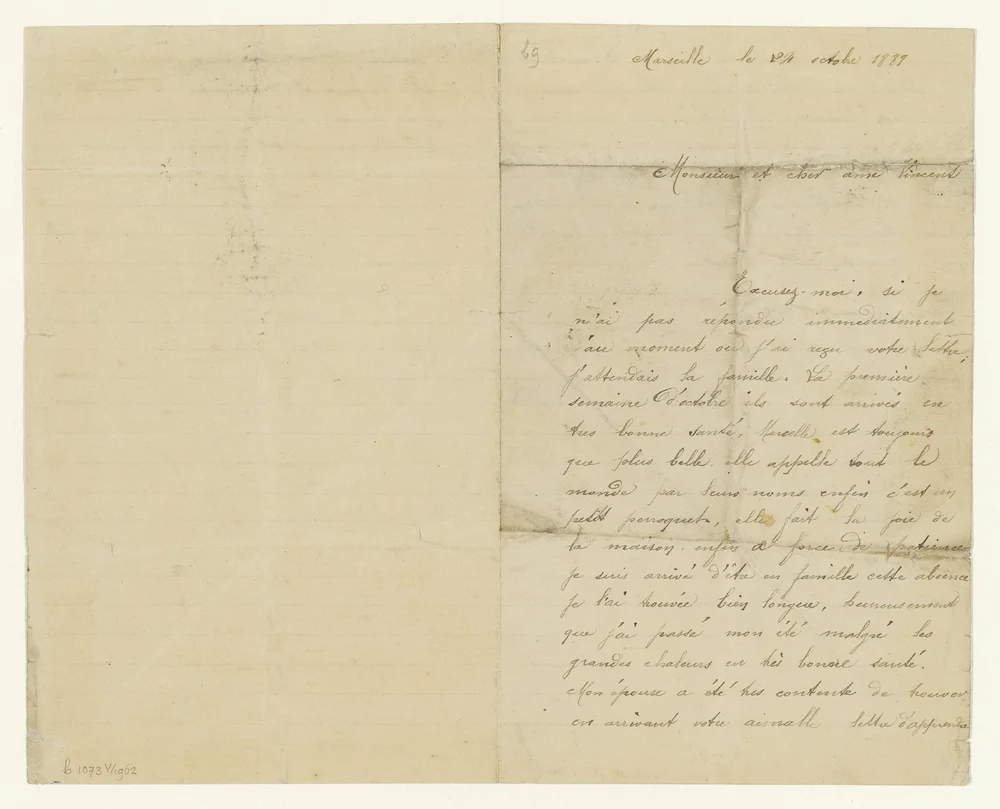 69
Marseille le 24 octobre 1889
Monsieur et cher ami Vincent
Excusez-moi, si je
n'ai pas répondu immédiatement
au moment ou j'ai reçu votre lettre,
j'attendais la famille. La première
semaine d'octobre ils sont arrivés en
très bonne santé, Marcelle est toujours
que plus belle. elle appelle tout le
monde par leurs noms enfin c'est un
petit perroquet, elle fait la joie de
la maison. enfin a force de patience
je suis arrivé d'être en famille cette absence
je l'ai trouvée bien longue, heureusement
que j'ai passé mon été malgré les
grandes chaleurs en très bonne santé.
Mon épouse a été très contente de trouver
en arrivant votre lettre d'apprendre
b 1073 V/1962